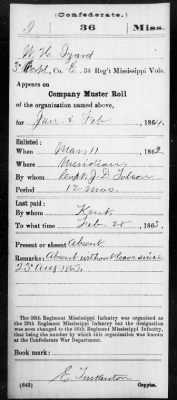 (Confederate.)
I 36 Miss.
W H Izard
3d Corpl, Co. E, 36 Reg't Mississippi Vols.
Appears on
Company Muster Roll
of the organization named above,
for Jan & Feb , 1864.
Enlisted:
When Mar 11 , 1862
Where Meridian
By whom Capt J. D.
Period 12 mos.
Last paid:
By whom Kent
To what time Feb. 28 , 1863.
Present or absent Absent
Remarks: Absent without leave since
23d Aug 1863
The 36th Regiment Mississippi Infantry was organized as
the 29th Regiment Mississippi Infantry but the designation
was soon changed to the 36th Regiment Mississippi Infantry,
that being the number by which this organization was known
at the Confederate War Department.
Book mark:
(642)
Copyist.